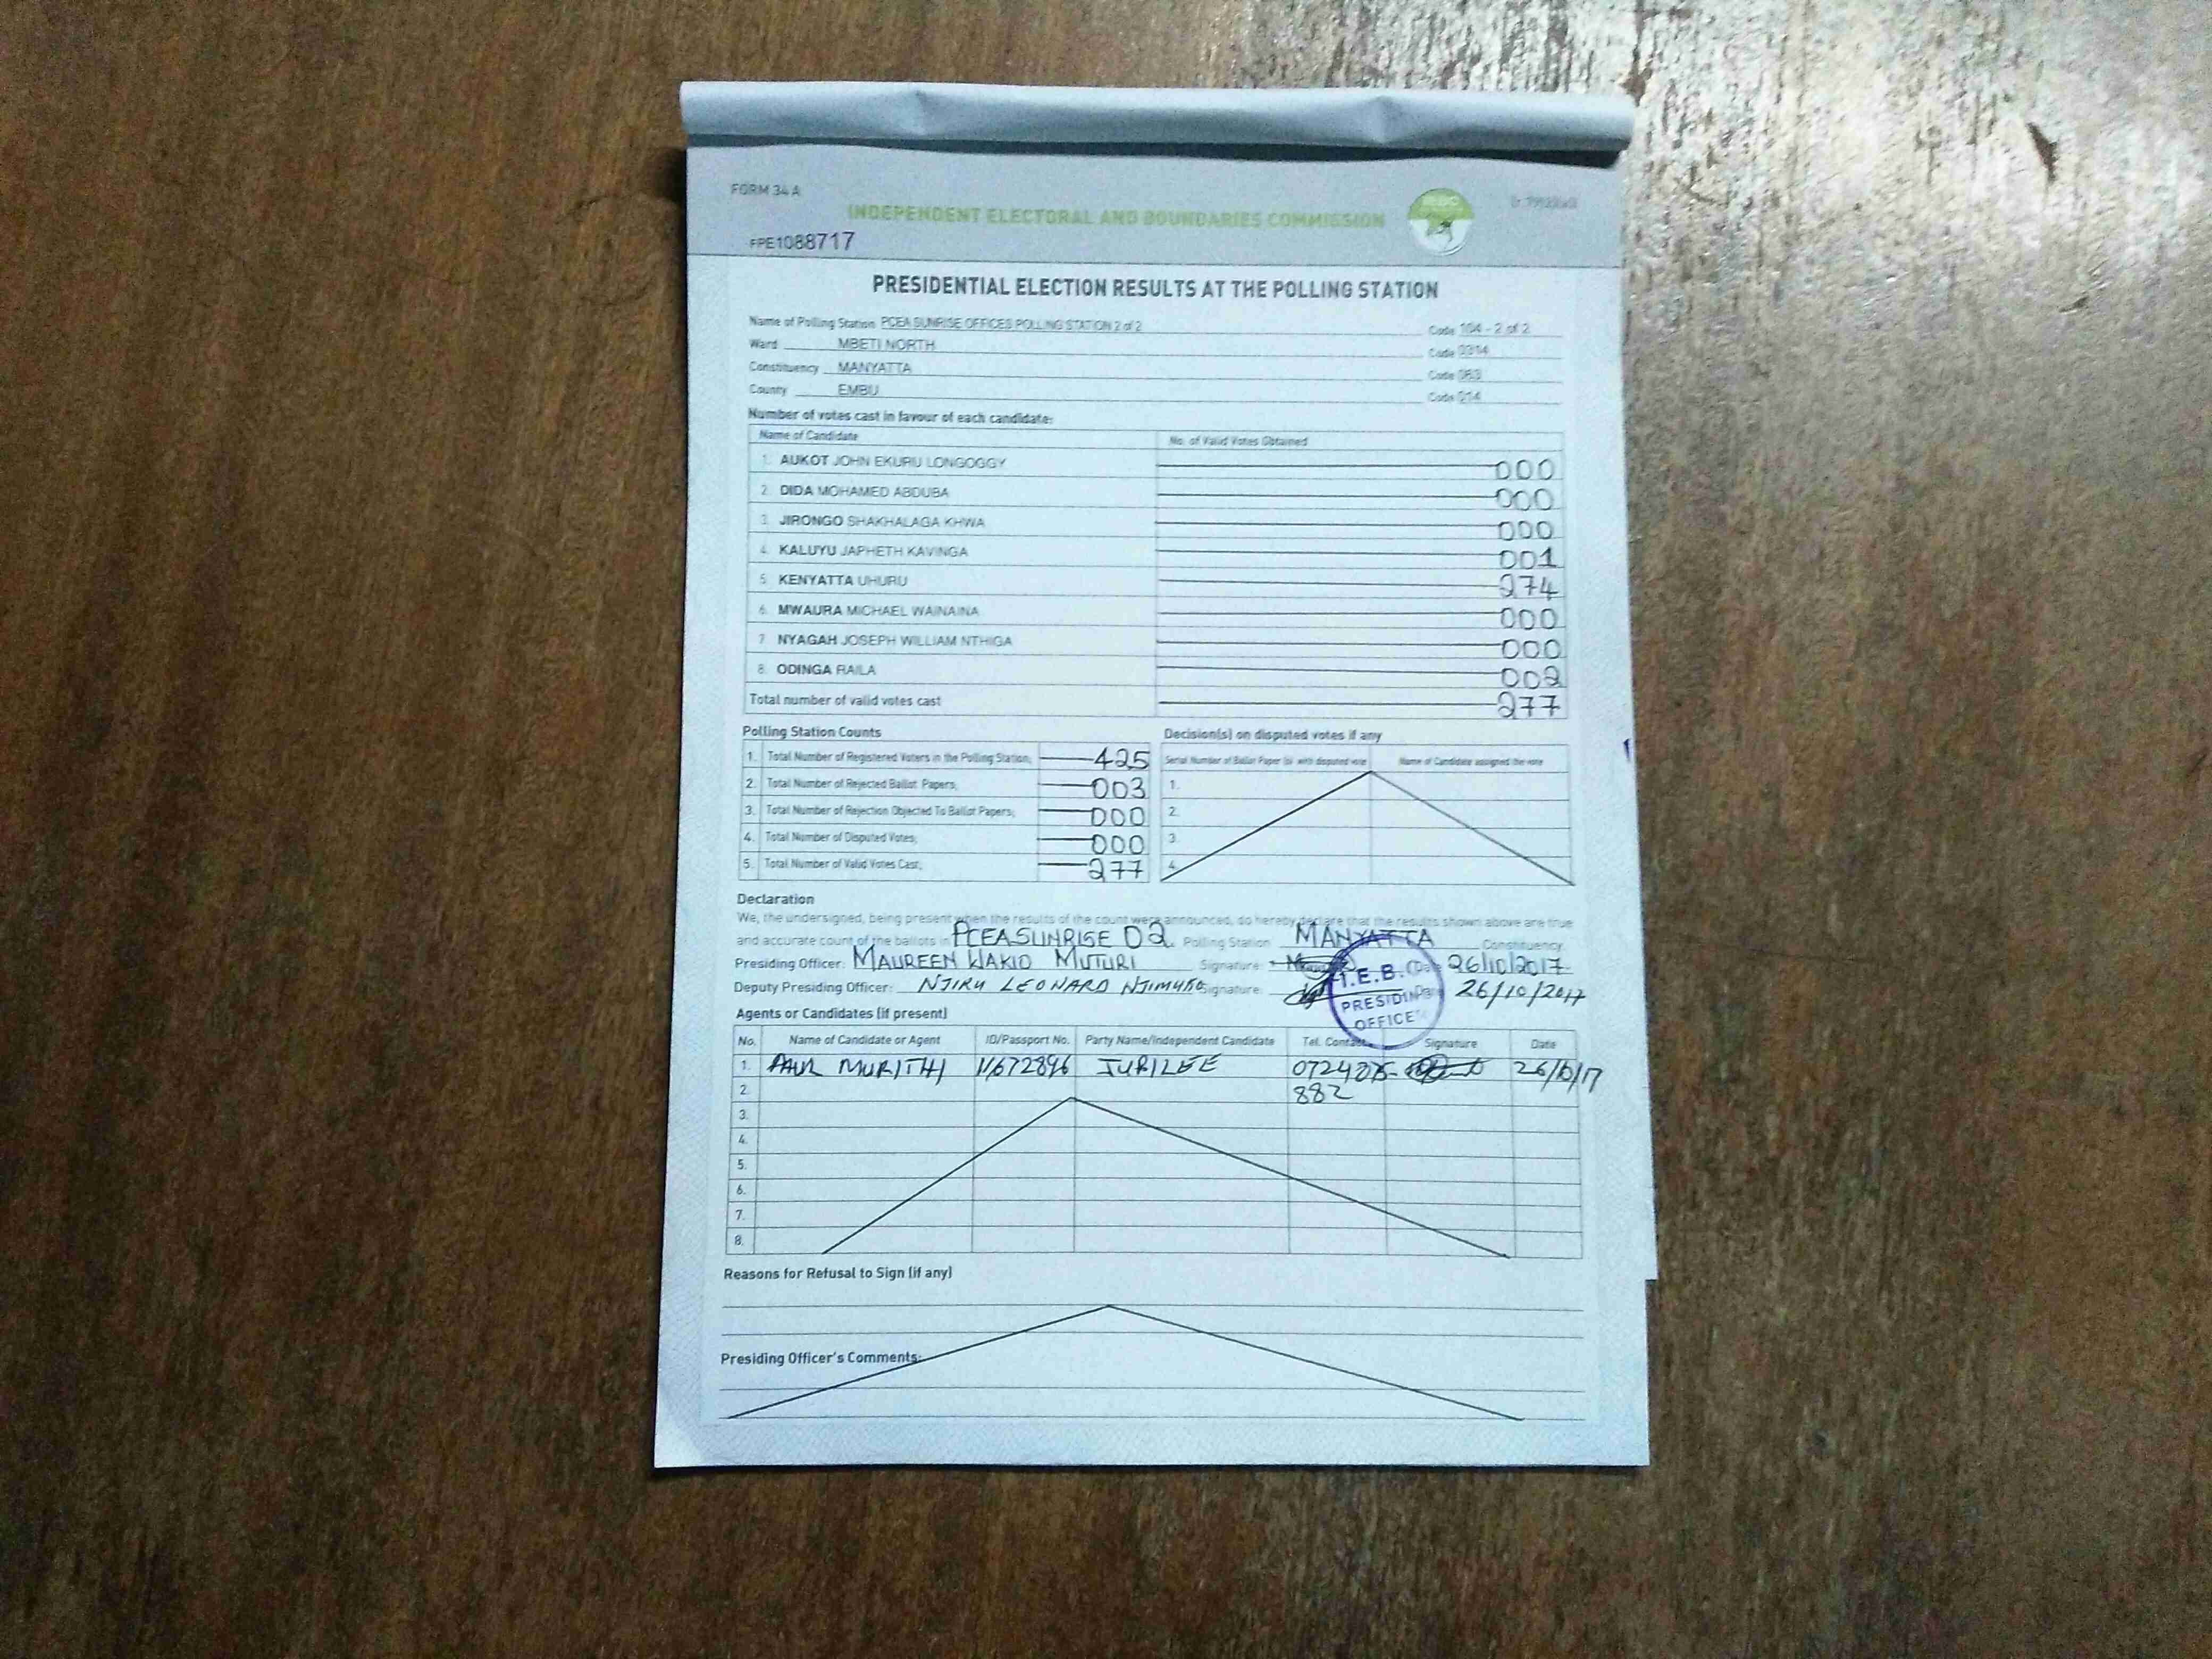 FORM 34 A
INDEPENDENT ELECTORAL AND BOUNDARIES COMMISSION
FPE1088717
PRESIDENTIAL ELECTION RESULTS AT THE POLLING STATION
Name of Polling Station PCEA SUNRISE OFFICES POLLING STATION 2 of 2 Code 104 - 2 of 2
Ward MBETI NORTH Code 0314
Constituency MANYATTA Code 063
County EMBU Code 014
Number of votes cast in favour of each candidate:
Name of Candidate No. of Valid Votes Obtained
1. AUKOT JOHN EKURU LONGOGGY 000
2. DIDA MOHAMED ABDUBA 000
3. JIRONGO SHAKHALAGA KHWA 000
4. KALUYU JAPHETH KAVINGA 001
5. KENYATTA UHURU 274
6. MWAURA MICHAEL WAINAINA 000
7. NYAGAH JOSEPH WILLIAM NTHIGA 000
8. ODINGA RAILA 002
Total number of valid votes cast 277
Polling Station Counts Decision(s) on disputed votes if any
Serial Number of Ballot Paper (s) with disputed vote Name of Candidate assigned the vote
1. Total Number of Registered Voters in the Polling Station; 425
2. Total Number of Rejected Ballot Papers; 003 1.
3. Total Number of Rejection Objected To Ballot Papers; 000 2.
4. Total Number of Disputed Votes; 000 3.
5. Total Number of Valid Votes Cast; 277 4.
Declaration
We, the undersigned, being present when the results of the count were announced, do hereby declare that the results shown above are true
and accurate count of the ballots in PCEA SUNRISE 02 Polling Station MANYATTA Constituency.
Presiding Officer: MAUREEN WAKIO MUTURI Signature: Date 26/10/2017
Deputy Presiding Officer: NJIRU LEONARD Signature: Date 26/10/2017
I.E.B.C
PRESIDING
OFFICER
Agents or Candidates (if present)
No. Name of Candidate or Agent ID/Passport No. Party Name/Independent Candidate Tel. Contact Signature Date
1. PAUL MURITHI 11672896 JUBILEE 26/10/17
2. 882
3.
4.
5.
6.
7.
8.
Reasons for Refusal to Sign (if any)
Presiding Officer's Comments: